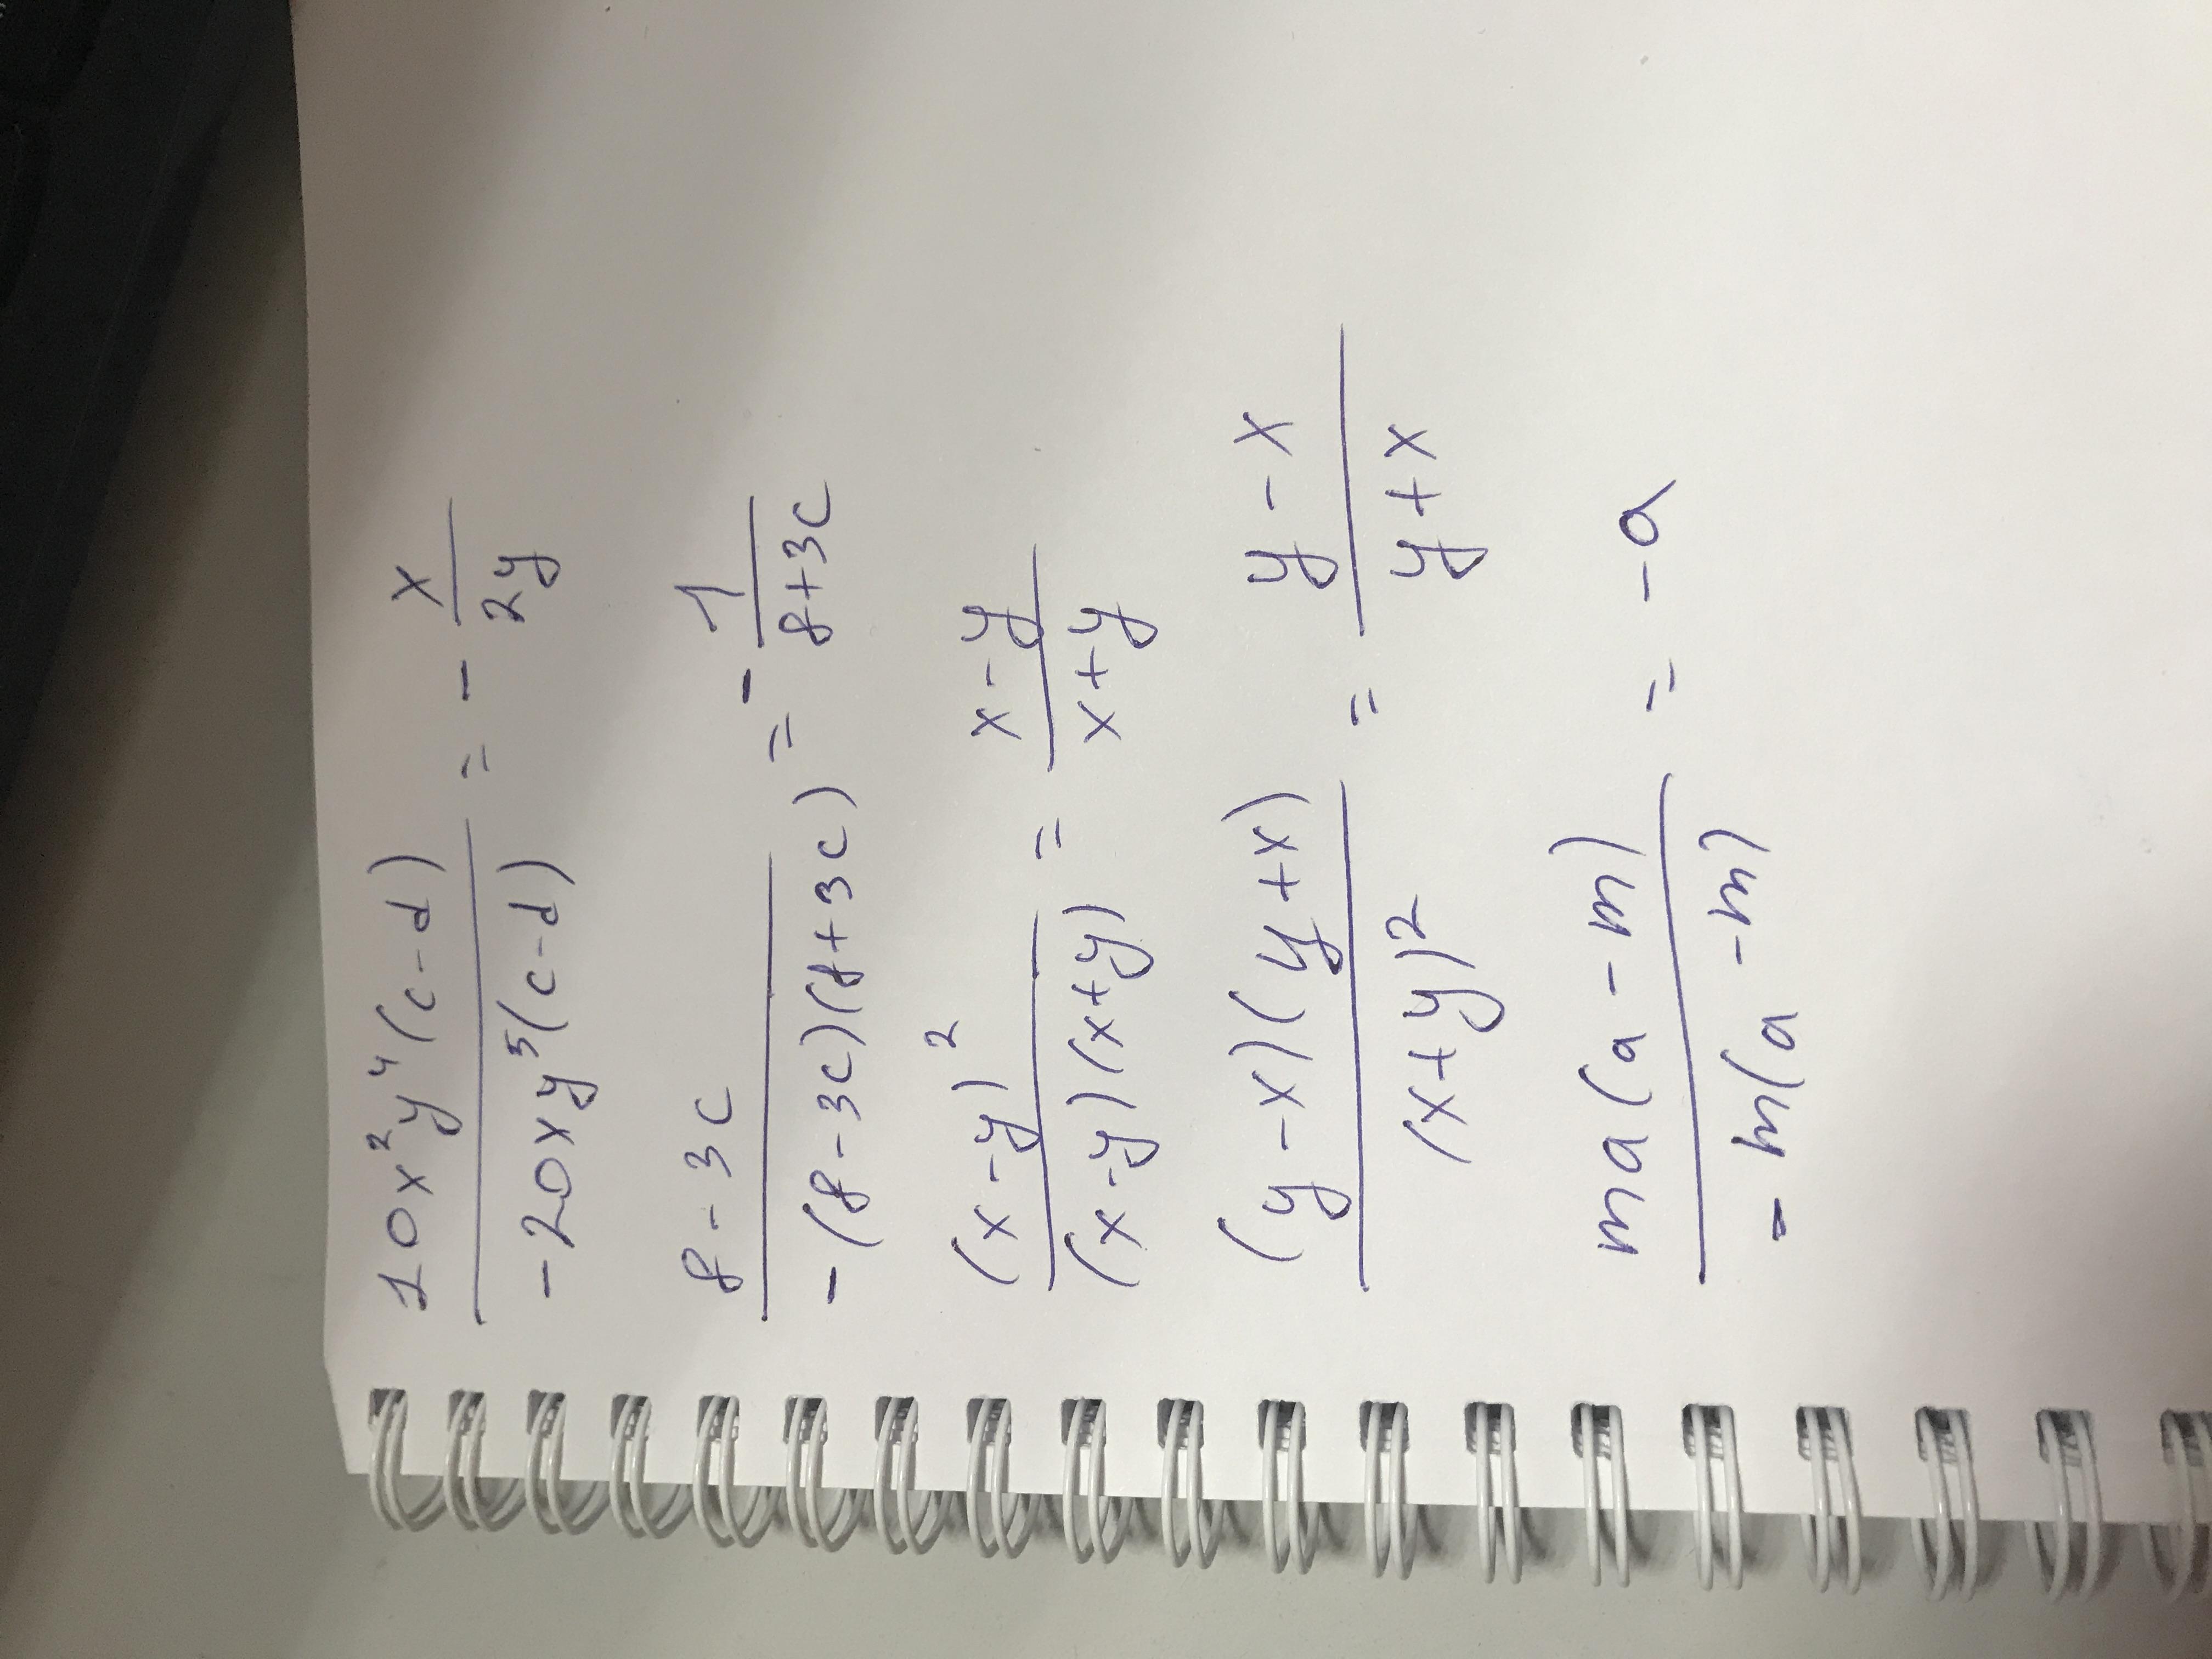 10x²y⁴(c-d)
-20xy⁵(c-d)
= - x
2y
8-3c
-(8-3c)(8+3c)
= - 1
8+3c
(x-y)²
(x-y)(x+y)
= x-y
x+y
(y-x)(y+x)
(x+y)²
= y-x
y+x
ma(a-m)
-m(a-m)
= -a